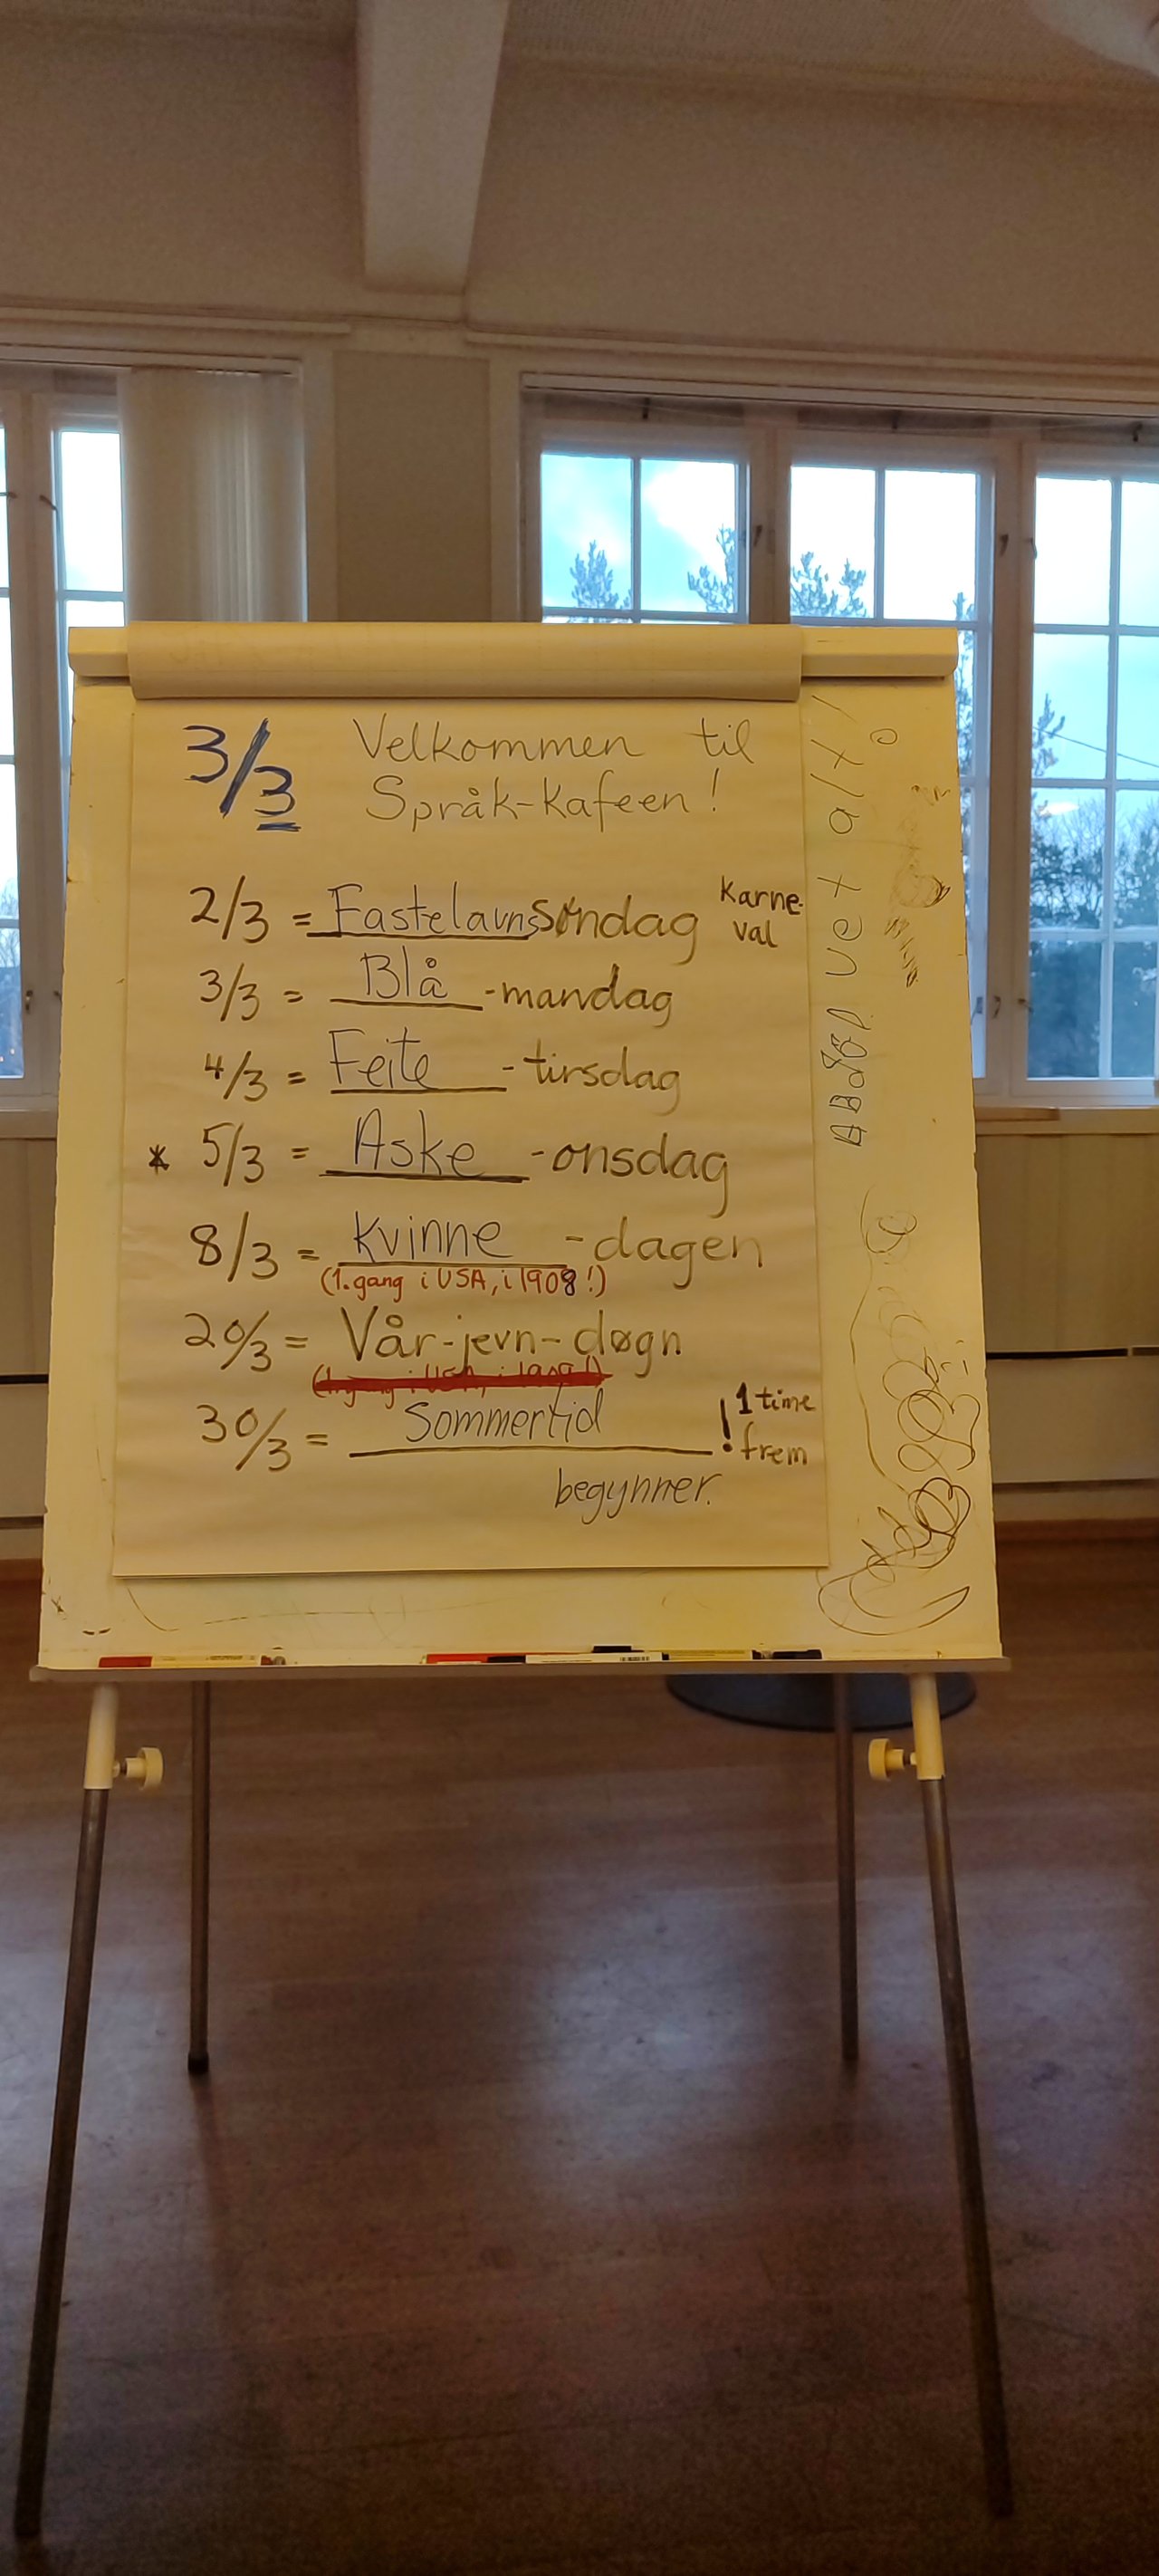 3/3 Velkommen til
Språk-Kafeen!
2/3 = Fastelavnssøndag Karne-
val
3/3 = Blå -mandag
4/3 = Feite -tirsdag
* 5/3 = Aske -onsdag
8/3 = Kvinne -dagen
(1.gang i USA, i 1908!)
20/3 = Vår-jevn-døgn
30/3 = Sommertid ! 1 time
frem
begynner.